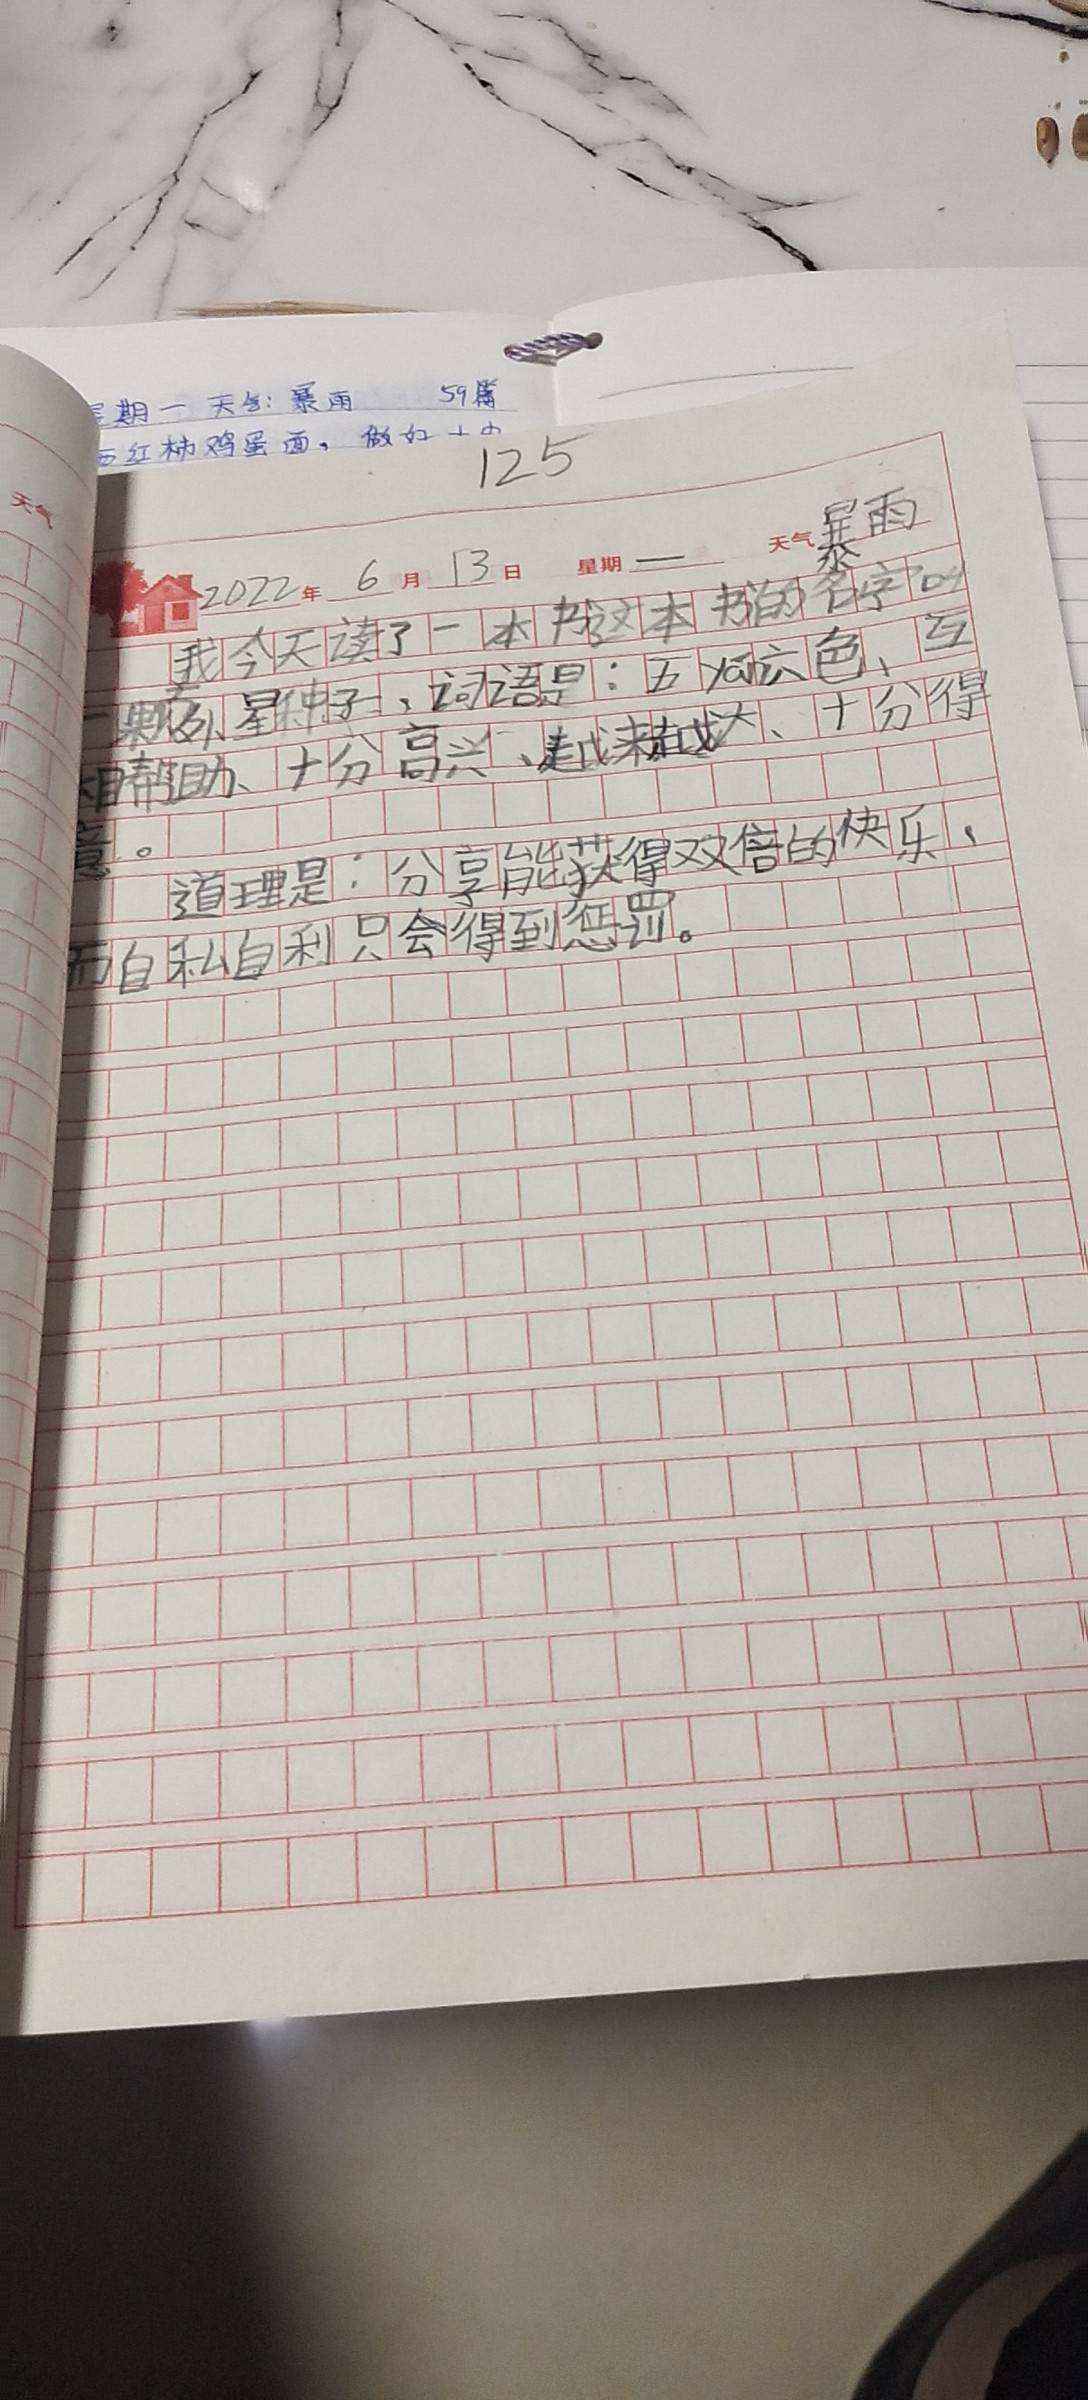 天气
期一 天气:暴雨 59篇
西红柿鸡蛋面,做好
125
2022年 6月 13日 星期一 天气暴雨
我今天读了一本书这本书的名字叫
一颗外星种子,词语是:五颜六色、互
相帮助、十分高兴、越来越大、十分得
意。
道理是:分享能获得双倍的快乐、
而自私自利只会得到惩罚。